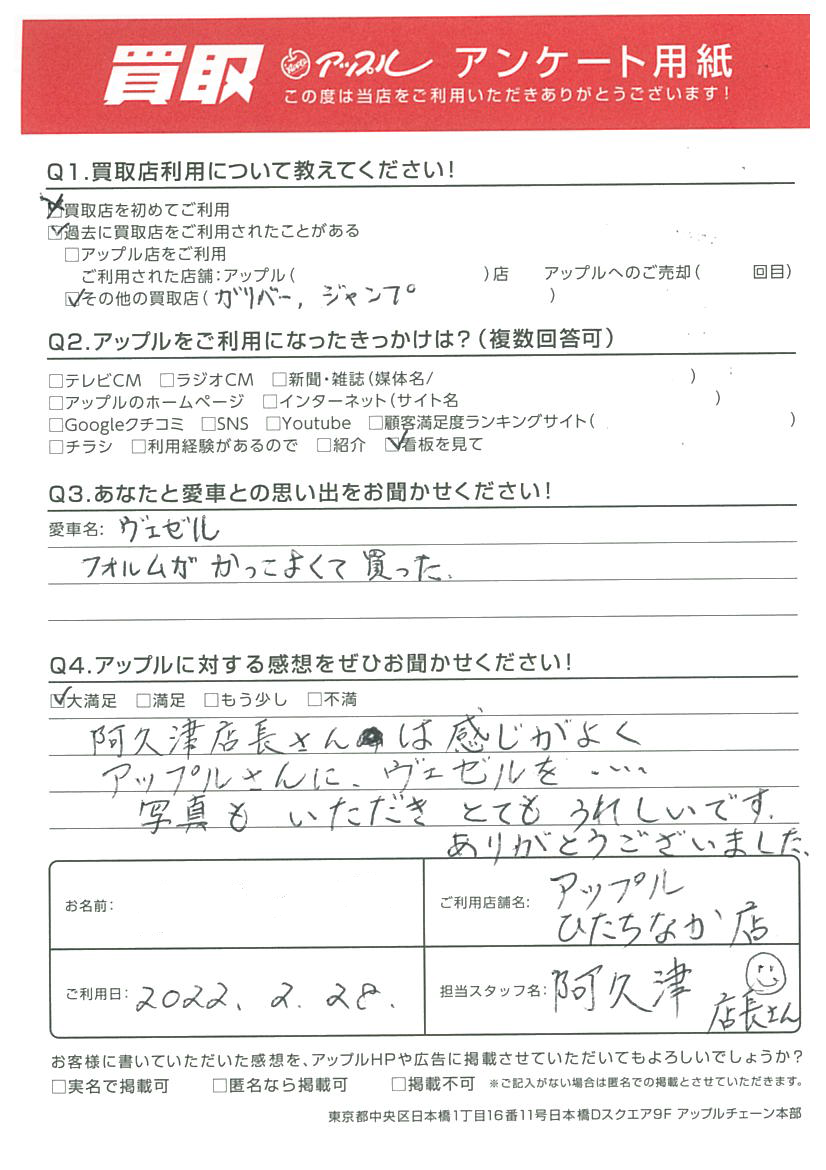 買取 アップル アンケート用紙
この度は当店をご利用いただきありがとうございます!
Q1.買取店利用について教えてください!
□買取店を初めてご利用
☑過去に買取店をご利用されたことがある
□アップル店をご利用
ご利用された店舗:アップル( )店 アップルへのご売却( 回目)
☑その他の買取店(ガリバー, ジャンプ )
Q2.アップルをご利用になったきっかけは?(複数回答可)
□テレビCM □ラジオCM □新聞・雑誌(媒体名/ )
□アップルのホームページ □インターネット(サイト名 )
□Googleクチコミ □SNS □Youtube □顧客満足度ランキングサイト( )
□チラシ □利用経験があるので □紹介 ☑看板を見て
Q3.あなたと愛車との思い出をお聞かせください!
愛車名: ヴェゼル
フォルムが かっこよくて 買った.
Q4.アップルに対する感想をぜひお聞かせください!
☑大満足 □満足 □もう少し □不満
阿久津店長さんは感じがよく
アップルさんに、ヴェゼルを....
写真も いただき とても うれしいです.
ありがとうございました.
お名前:
ご利用店舗名: アップル
ひたちなか店
ご利用日: 2022. 2. 28.
担当スタッフ名: 阿久津
店長さん
お客様に書いていただいた感想を、アップルHPや広告に掲載させていただいてもよろしいでしょうか?
□実名で掲載可 □匿名なら掲載可 □掲載不可 ※ご記入がない場合は匿名での掲載とさせていただきます。
東京都中央区日本橋1丁目16番11号日本橋Dスクエア9F アップルチェーン本部